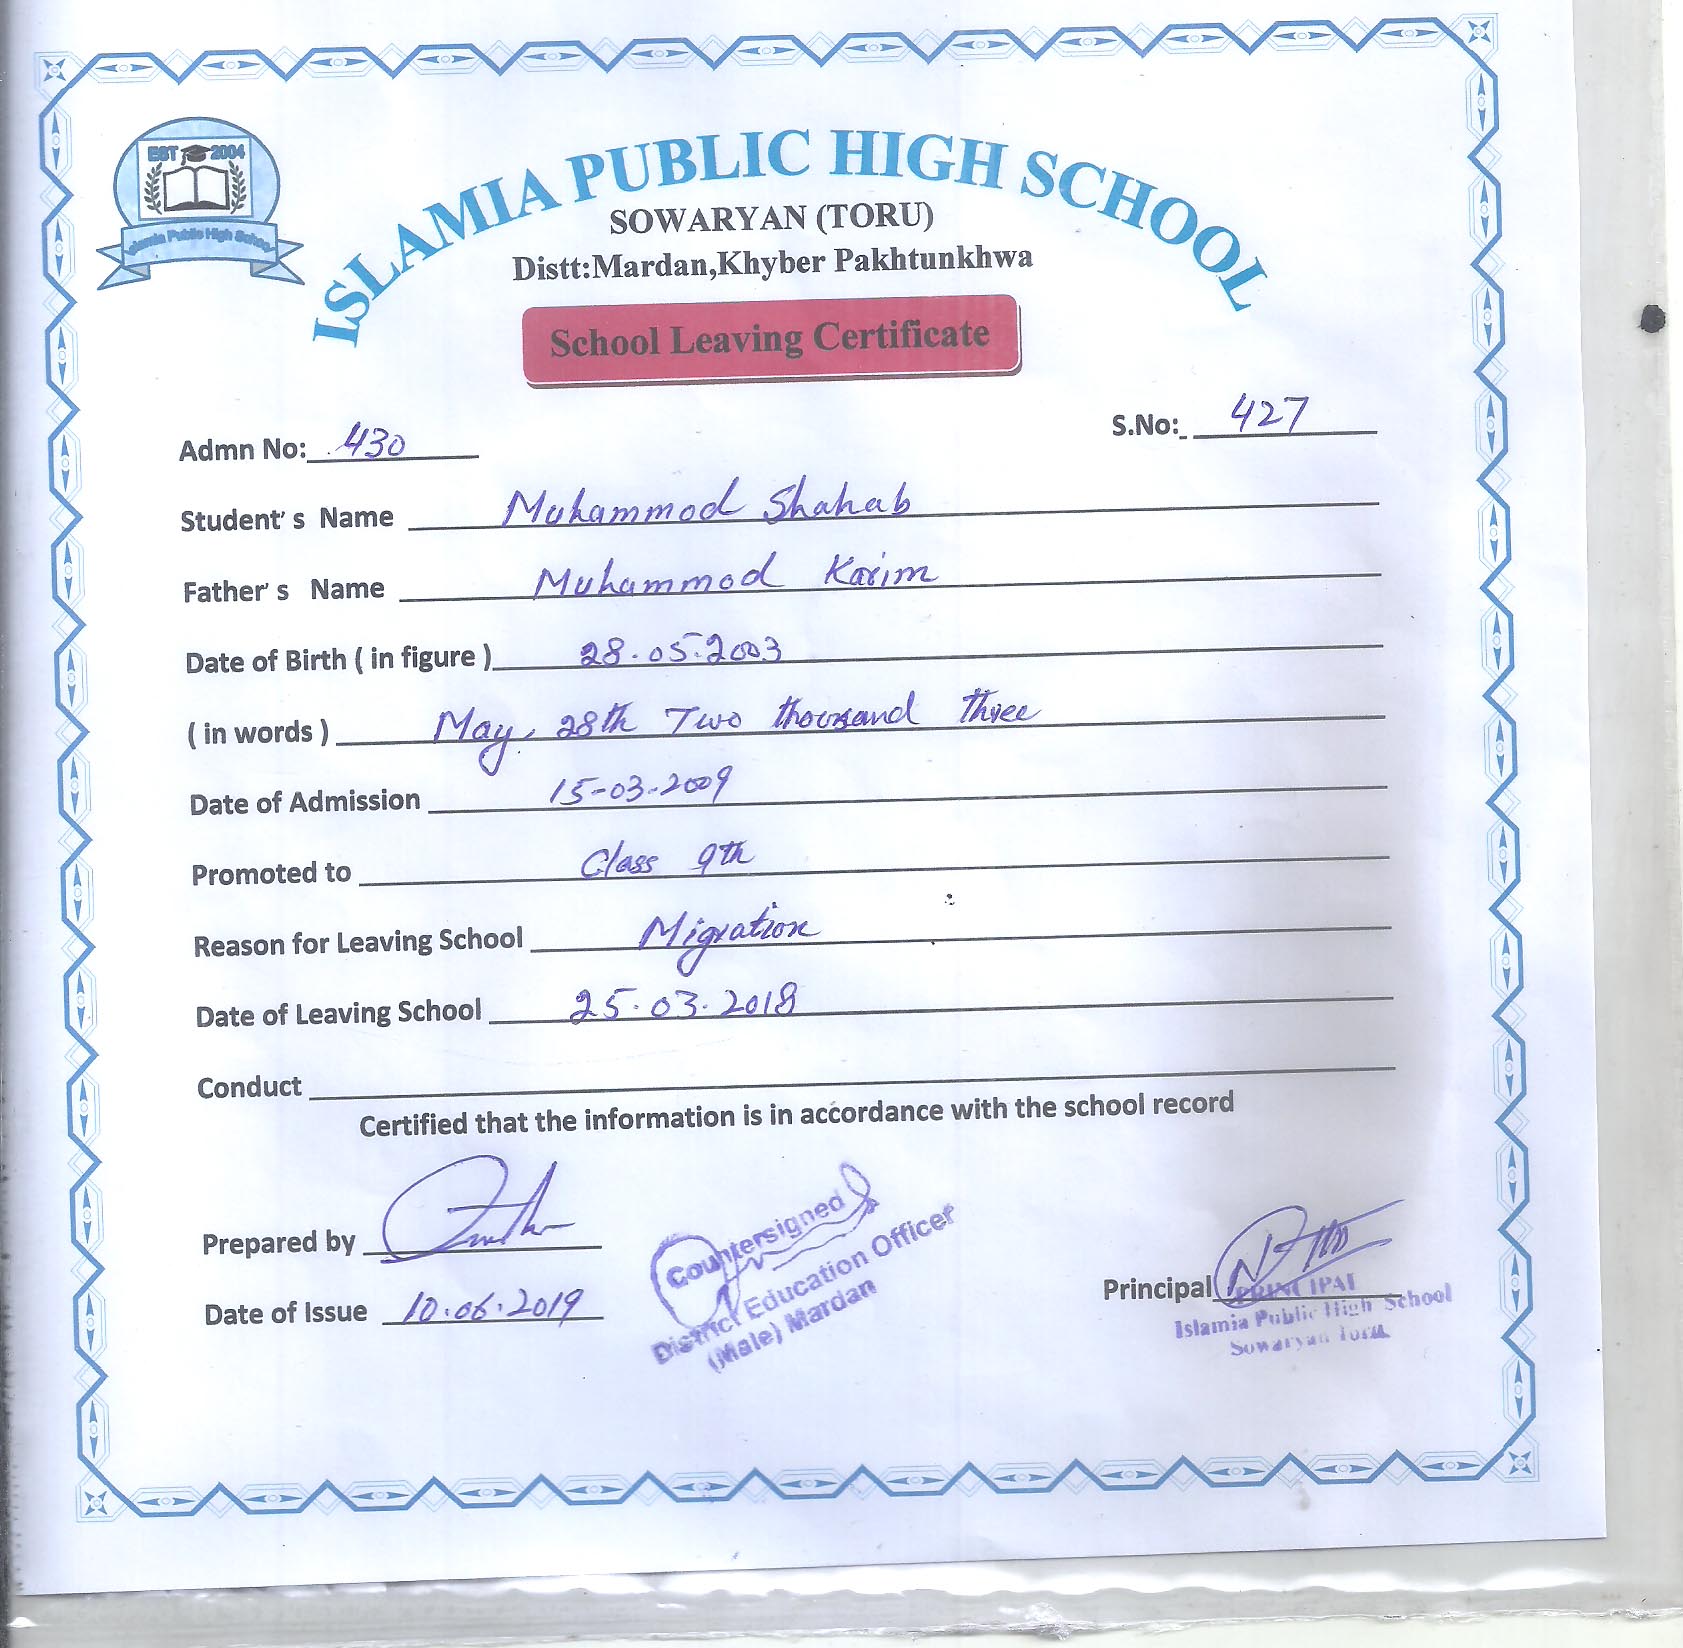 EST 2004
Islamia Public High School
ISLAMIA PUBLIC HIGH SCHOOL
SOWARYAN (TORU)
Distt:Mardan,Khyber Pakhtunkhwa
School Leaving Certificate
Admn No: 430 S.No: 427
Student's Name Muhammod Shahab
Father's Name Muhammod Karim
Date of Birth ( in figure ) 28.05.2003
( in words ) May, 28th Two thousand three
Date of Admission 15-03-2009
Promoted to Class 9th
Reason for Leaving School Migration
Date of Leaving School 25.03.2018
Conduct
Certified that the information is in accordance with the school record
Prepared by
Countersigned
District Education Officer
(Male) Mardan
Date of Issue 10.06.2019
Principal
PRINCIPAL
Islamia Public High School
Sowaryan Toru